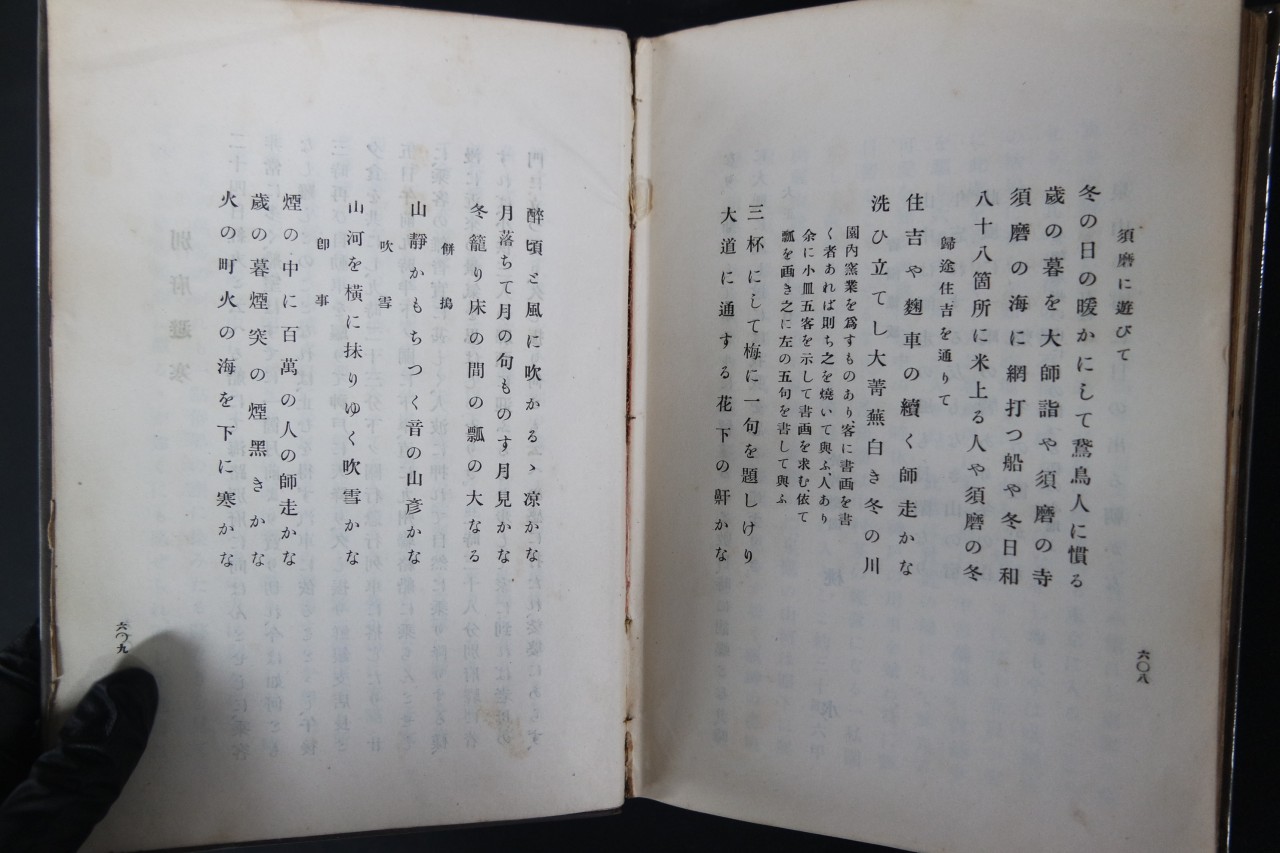 須磨に遊びて
冬の日の暖かにして鵞鳥人に慣る
歲の暮を大師詣や須磨の寺
須磨の海に網打つ船や冬日和
八十八箇所に米上る人や須磨の冬
歸途住吉を通りて
住吉や麹車の續く師走かな
洗ひ立てし大菁蕪白き冬の川
園內窯業を爲すものあり、客に書画を書
く者あれば則ち之を燒いて與ふ、人あり
余に小皿五客を示して書画を求む、依て
瓢を画き之に左の五句を書して與ふ
三杯にして梅に一句を題しけり
大道に通ずる花下の鼾かな
六〇八
醉頃と風に吹かるゝ凉かな
月落ちて月の句ものす月見かな
冬籠り床の間の瓢の大なる
餅搗
山靜かもちつく音の山彥かな
吹雪
山河を橫に抹りゆく吹雪かな
卽事
煙の中に百萬の人の師走かな
歲の暮煙突の煙黑きかな
火の町火の海を下に寒かな
六〇九